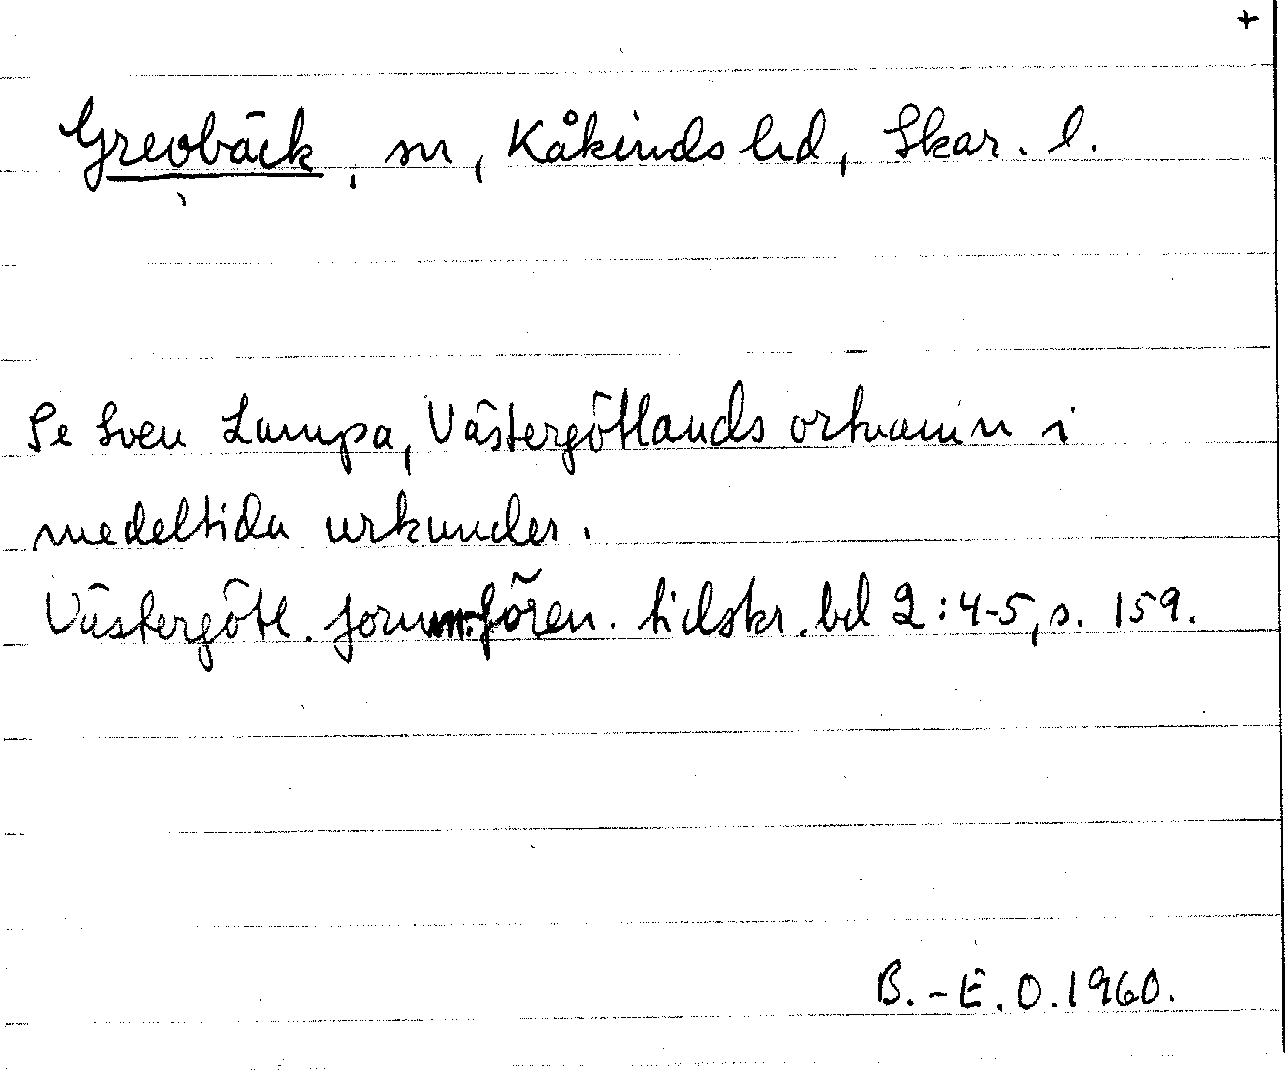 +
Grevbäck, sn, Kåkinds hd, Skar. l.
Se Sven Lampa, Västergötlands ortnamn i
medeltida urkunder.
Västergötl. fornm.fören. tidskr. bd 2:4-5, s. 159.
B.-E. O. 1960.